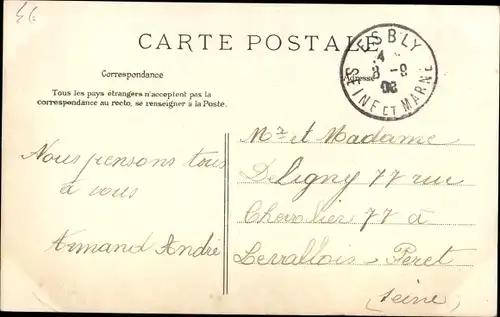 CARTE POSTALE
ESBLY
8 - 9
08
SEINE ET MARNE
Correspondance
Adresse
Tous les pays étrangers n'acceptent pas la
correspondance au recto, se renseigner à la Poste.
Nous pensons tous
à vous
Armand André
Mr et Madame
Deligny 77 rue
Chevalier 77 à
Levallois-Peret
(Seine)